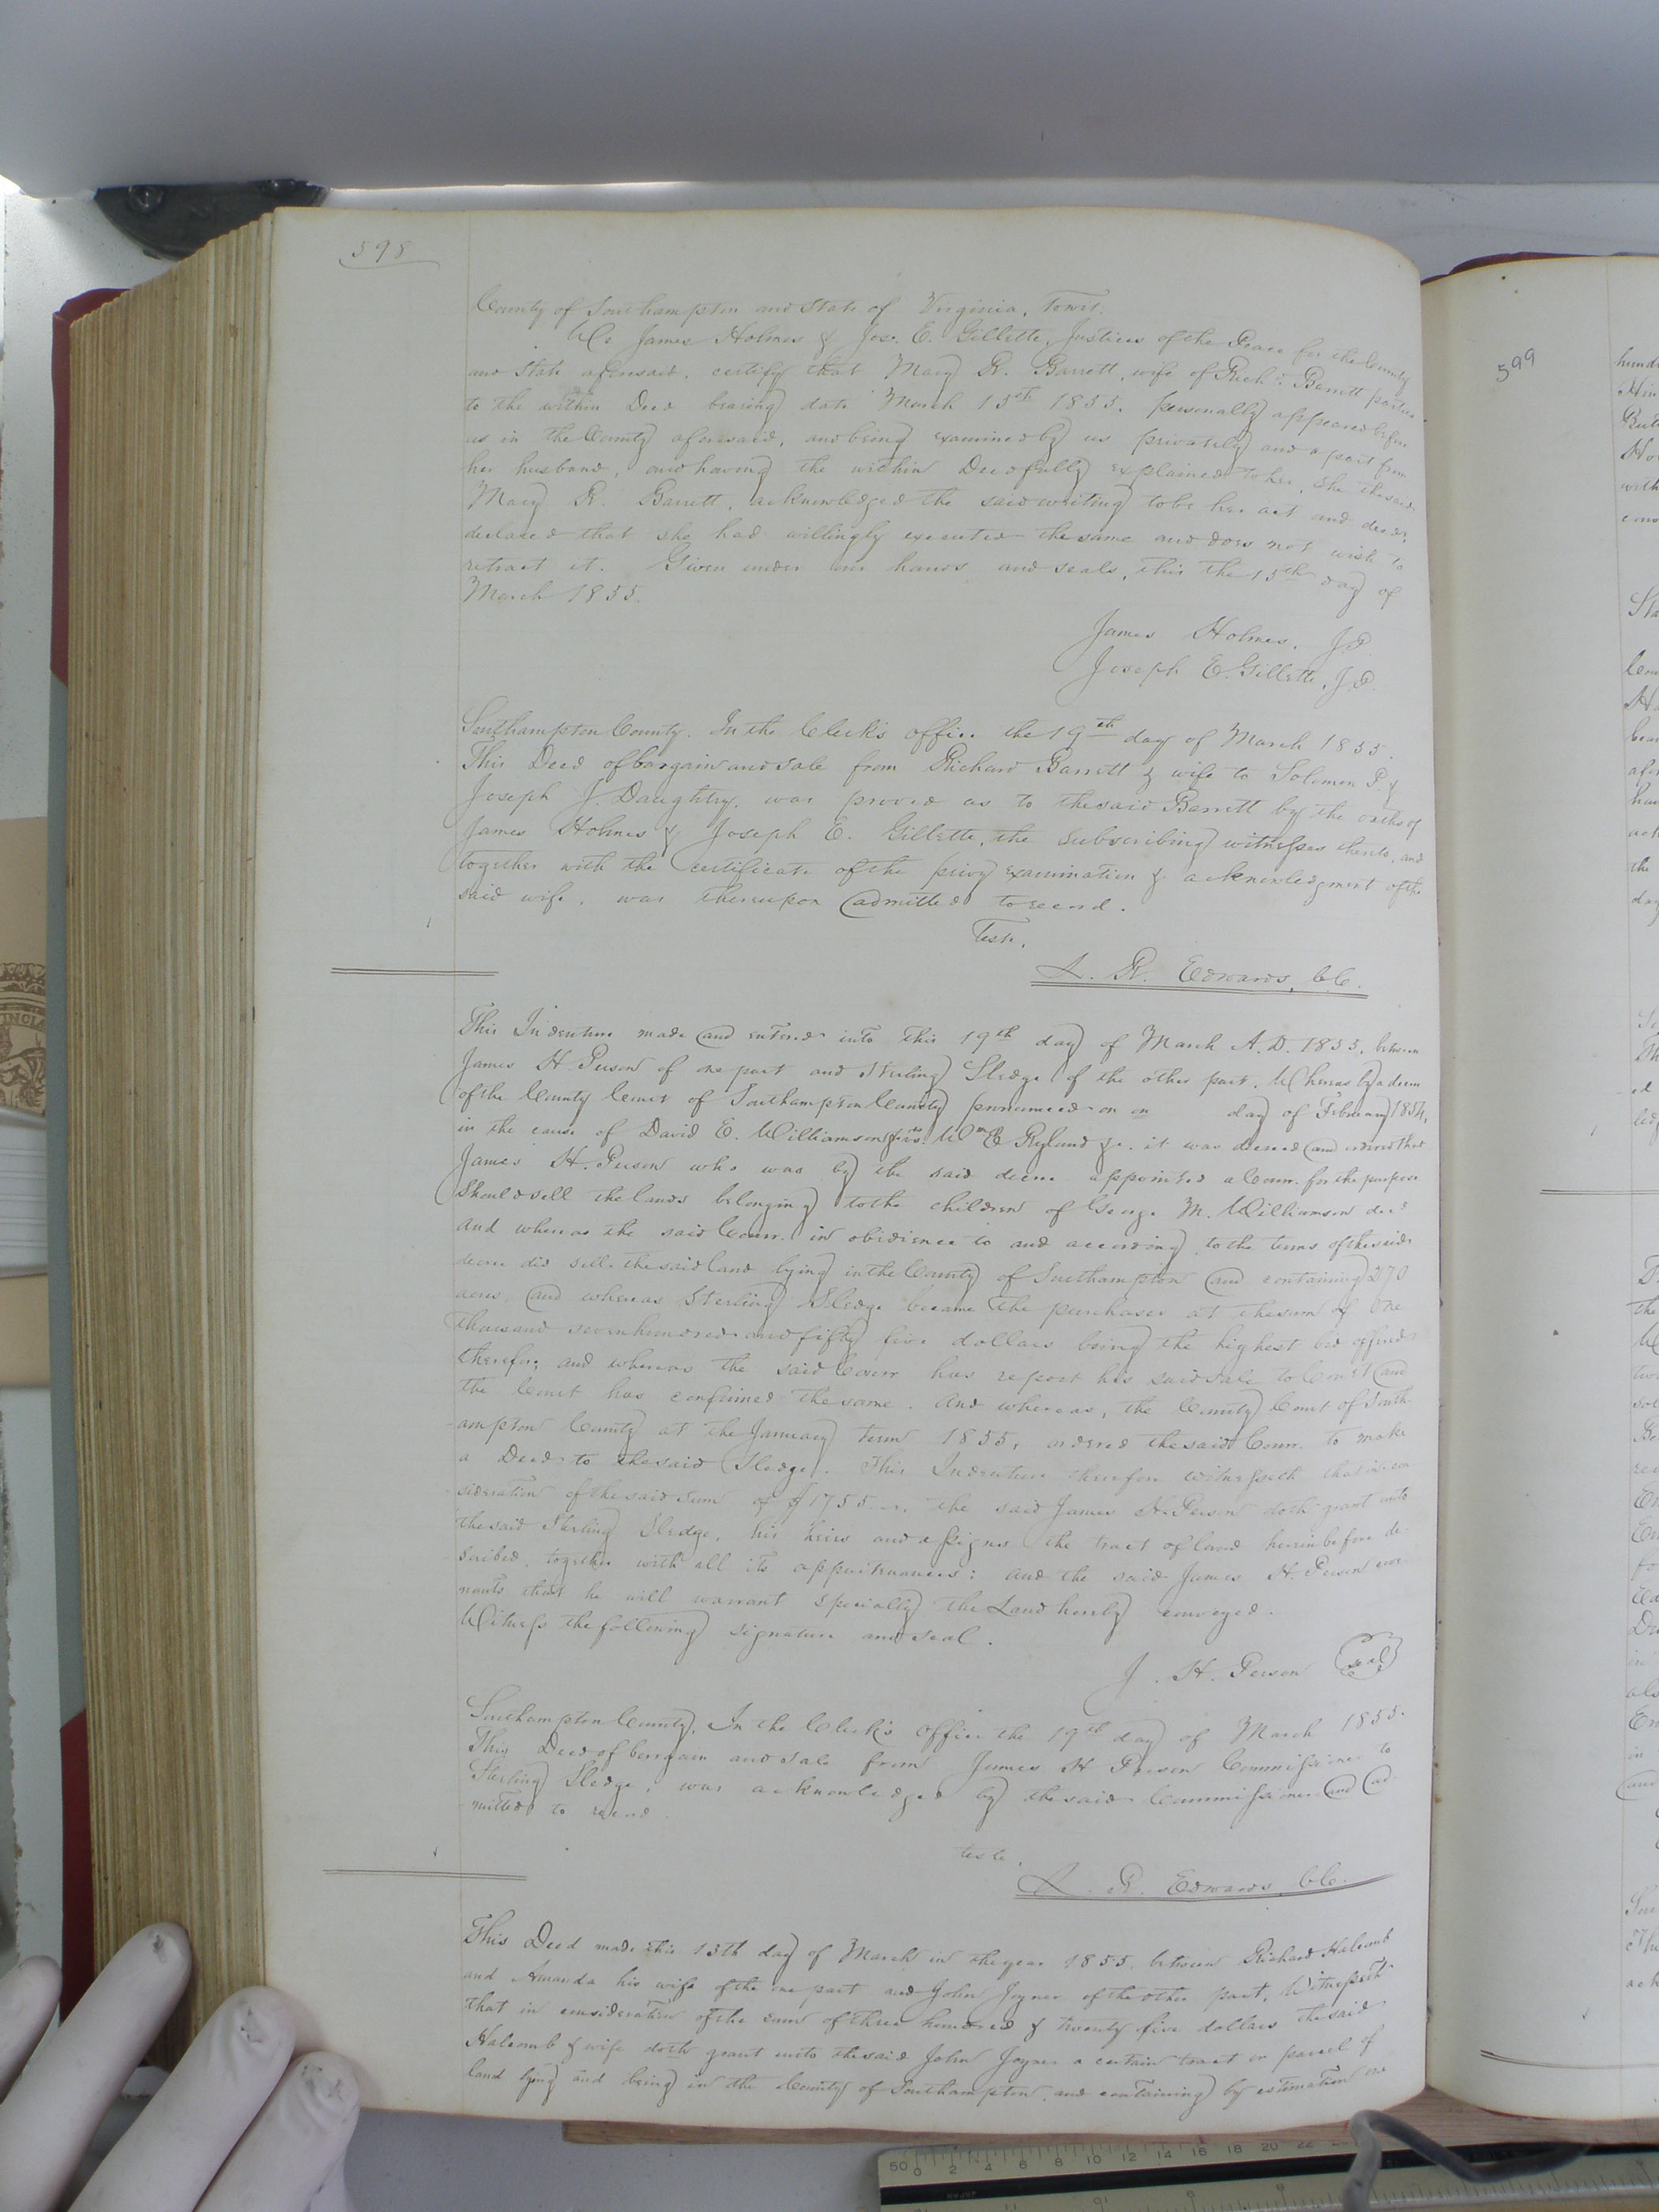 598
County of Southampton and State of Virginia, Towit:
We James Holmes & Jos. E. Gillette, Justices of the Peace for the County
and State aforesaid, certify that Mary R. Barrett, wife of Richd. Barrett parties
to the within Deed bearing date March 15th 1855, personally appeared before
us in the County aforesaid, and being examined by us privately and apart from
her husband, and having the within Deed fully explained to her, she the said
Mary R. Barrett, acknowledged the said writing to be her act and deed,
declared that she had willingly executed the same and does not wish to
retract it. Given under our hands and seals, this the 15th day of
March 1855.
James Holmes, J.P.
Joseph E. Gillette, J.P.
Southampton County. In the Clerk's office the 19th day of March 1855.
This Deed of bargain and sale from Richard Barrett & wife to Solomon P. &
Joseph J. Daughtry, was proved as to the said Barrett by the oaths of
James Holmes & Joseph E. Gillette, the subscribing witnesses thereto, and
together with the certificate of the privy examination & acknowledgment of the
said wife, was thereupon admitted to record.
Teste,
L. R. Edwards, C.C.
This Indenture made and entered into this 19th day of March A.D. 1855, between
James H. Person of one part and Sterling Sledge of the other part. Whereas by a decree
of the County Court of Southampton County pronounced on day of February 1854,
in the cause of David E. Williamson vs. Wm E Ryland &c. it was decreed and ordered that
James H. Person who was by the said decree appointed a Comr. for the purpose
should sell the lands belonging to the children of George M. Williamson decd
and whereas the said Comr. in obidience to and according to the terms of the said
decree did sell the said land lying in the County of Southampton and containing 270
acres, and whereas Sterling Sledge became the purchaser at the sum of One
thousand seven hundred and fifty five dollars being the highest bid offered
therefor, and whereas the said Comr has report his said sale to Court and
the Court has confirmed the same. And whereas, the County Court of South-
ampton County at the January term 1855, ordered the said Comr. to make
a Deed to the said Sledge. This Indenture therefore witnesseth that in con-
sideration of the said sum of $1755 the said James H. Person doth grant unto
the said Sterling Sledge, his heirs and assigns the tract of land herein before de-
scribed, together with all its appurtenances: and the said James H Person cove-
nants that he will warrant specially the Land hereby conveyed.
Witness the following signature and seal.
J. H. Person Seal
Southampton County. In the Clerk's Office the 19th day of March 1855.
This Deed of bargain and sale from James H Person Commissioner to
Sterling Sledge, was acknowledged by the said Commissioner and ad-
mitted to record.
teste,
L. R. Edwards, C.C.
This Deed made this 13th day of March in the year 1855 between Richard Halcomb
and Amanda his wife of the one part and John Joyner of the other part, Witnesseth
that in consideration of the sum of three hundred & twenty five dollars the said
Halcomb & wife doth grant unto the said John Joyner a certain tract or parcel of
land lying and being in the County of Southampton, and containing by estimation one
599
50 0 2 4 6 8 10 12 14 16 18 20 22